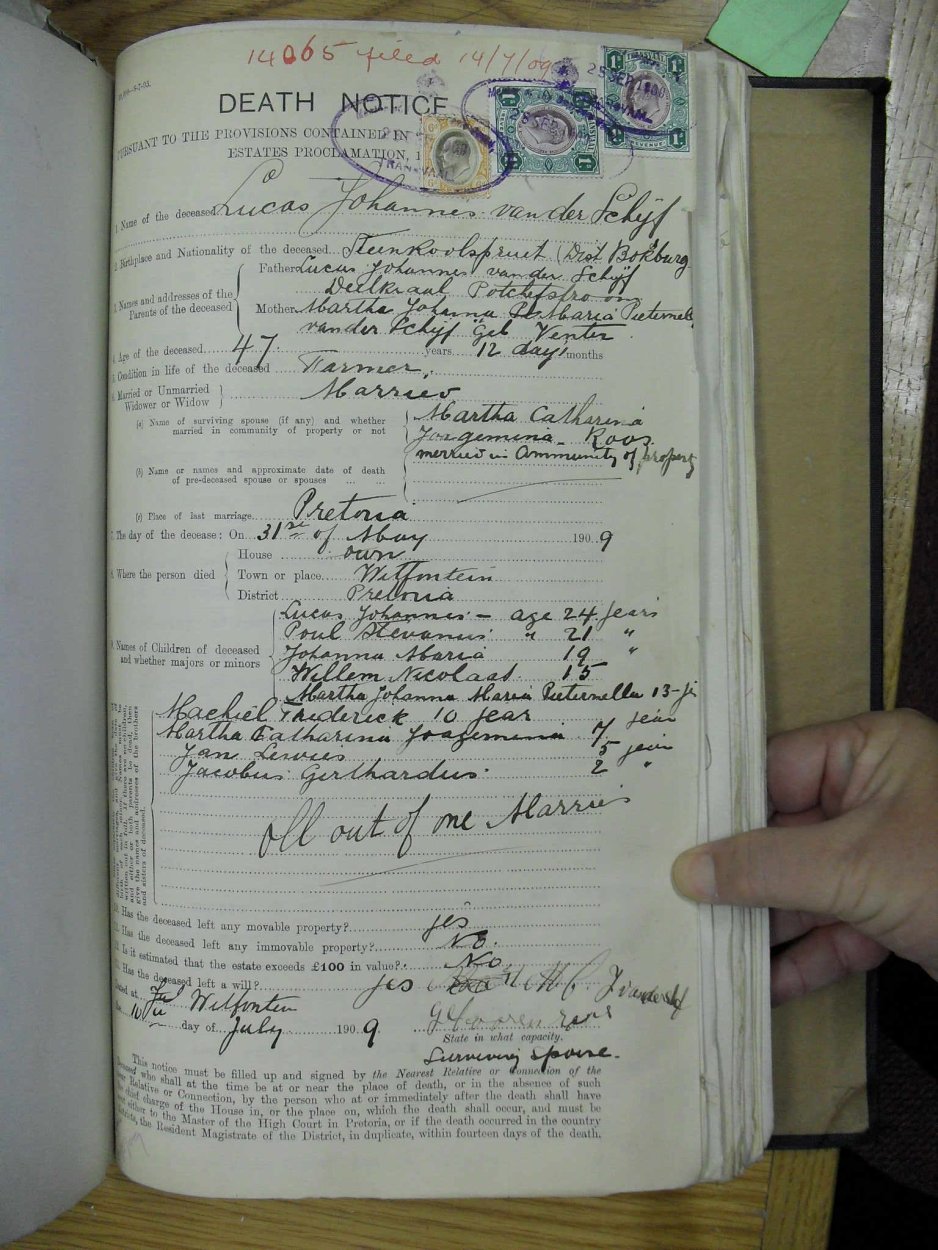 14065 filed 14/7/09
DEATH NOTICE
PURSUANT TO THE PROVISIONS CONTAINED IN
ESTATES PROCLAMATION, 1
TRANSVAAL
REVENUE
1 Name of the deceased Lucas Johannes van der Schijf
2. Birthplace and Nationality of the deceased Steenkoolspruit (Dist Boksburg
3. Names and addresses of the Parents of the deceased
Father Lucas Johannes van der Schijf
Deelkraal Potchefstroom
Mother Martha Johanna Maria Pieternella
van der Schijf Geb Venter
4. Age of the deceased 47 years 12 days months
5. Condition in life of the deceased Farmer
6. Married or Unmarried Widower or Widow Married
(a) Name of surviving spouse (if any) and whether married in community of property or not
Martha Catharina
Joagemina Roos
merried in Community of property
(b) Name or names and approximate date of death of pre-deceased spouse or spouses
(c) Place of last marriage Pretoria
7. The day of the decease: On 31st of May 1909
8. Where the person died
House own
Town or place Witfontein
District Pretoria
9. Names of Children of deceased and whether majors or minors
Lucas Johannes - age 24 Jears
Poul Stevanus " 21 "
Johanna Maria 19 "
Willem Nicolaas 15
Martha Johanna Maria Pieternella 13
Machiel Frederick 10 Jear
Martha Catharina Joagemina 7 Jear
Jan Lewies 5 Jear
Jacobus Gerthardus 2 "
give the names and addresses of the brothers
and sisters of deceased.
All out of one Marrie
10. Has the deceased left any movable property? Jes
11. Has the deceased left any immovable property? No.
12. Is it estimated that the estate exceeds £100 in value? No
13. Has the deceased left a will? Jes
Dated at Witfontein
the 10 day of July 1909.
State in what capacity.
Surviving Spouse.
This notice must be filled up and signed by the Nearest Relative or Connection of the
Deceased who shall at the time be at or near the place of death, or in the absence of such
near Relative or Connection, by the person who at or immediately after the death shall have
the chief charge of the House in, or the place on, which the death shall occur, and must be
sent either to the Master of the High Court in Pretoria, or if the death occurred in the country
districts, the Resident Magistrate of the District, in duplicate, within fourteen days of the death.